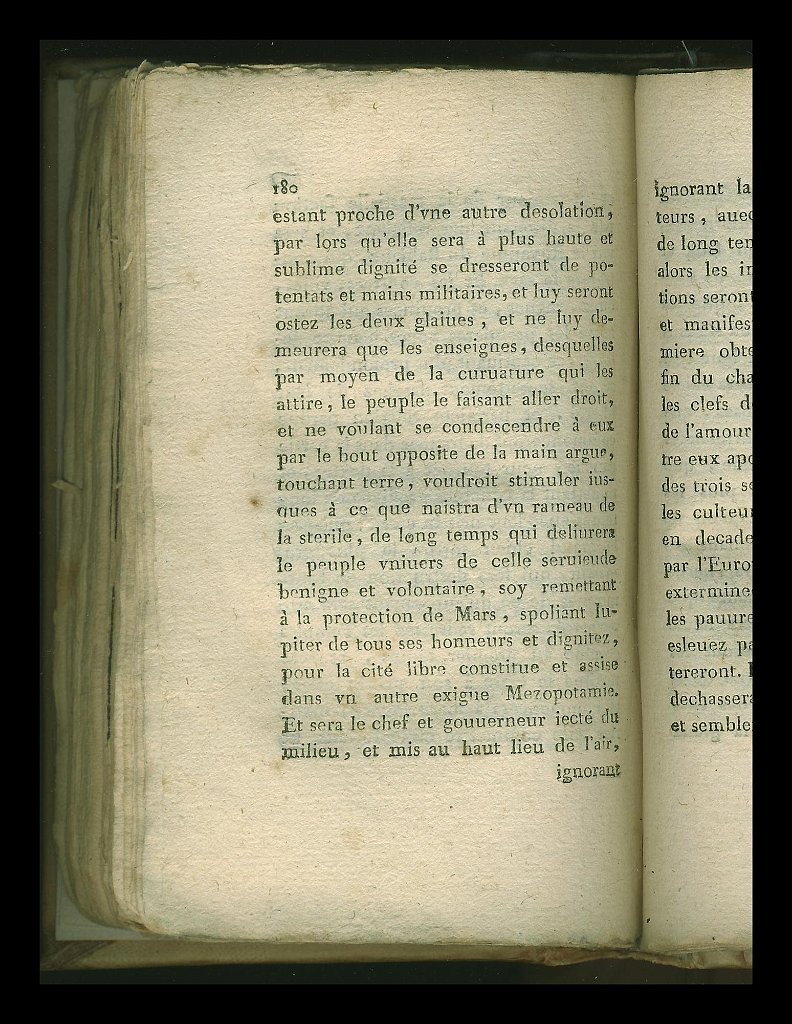 180
estant proche d'vne autre desolation,
par lors qu'elle sera à plus haute et
sublime dignité se dresseront de po-
tentats et mains militaires, et luy seront
ostez les deux glaiues, et ne luy de-
meurera que les enseignes, desquelles
par moyen de la curuature qui les
attire, le peuple le faisant aller droit,
et ne voulant se condescendre à eux
par le bout opposite de la main argue,
touchant terre, voudroit stimuler ius-
ques à ce que naistra d'vn rameau de
la sterile, de long temps qui deliurera
le peuple vniuers de celle seruieude
benigne et volontaire, soy remettant
à la protection de Mars, spoliant Iu-
piter de tous ses honneurs et dignitez,
pour la cité libre constitue et assise
dans vn autre exigue Mezopotamie.
Et sera le chef et gouuerneur iecté du
milieu, et mis au haut lieu de l'air,
ignorant
ignorant la
teurs, auec
de long tem
alors les
tions seront
et manifes
miere obte
fin du cha
les clefs d
de l'amour
tre eux apo
des trois se
les culteu
en decade
par l'Euro
extermine
les pauure
esleuez pa
tereront.
dechassera
et semble